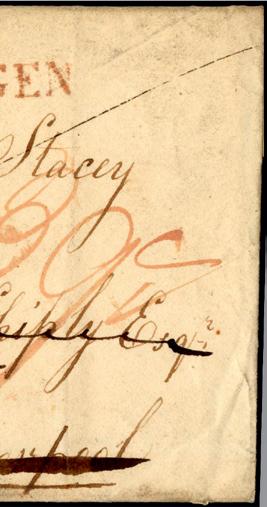 GEN
Stacey
hiply Esqr.
erpool